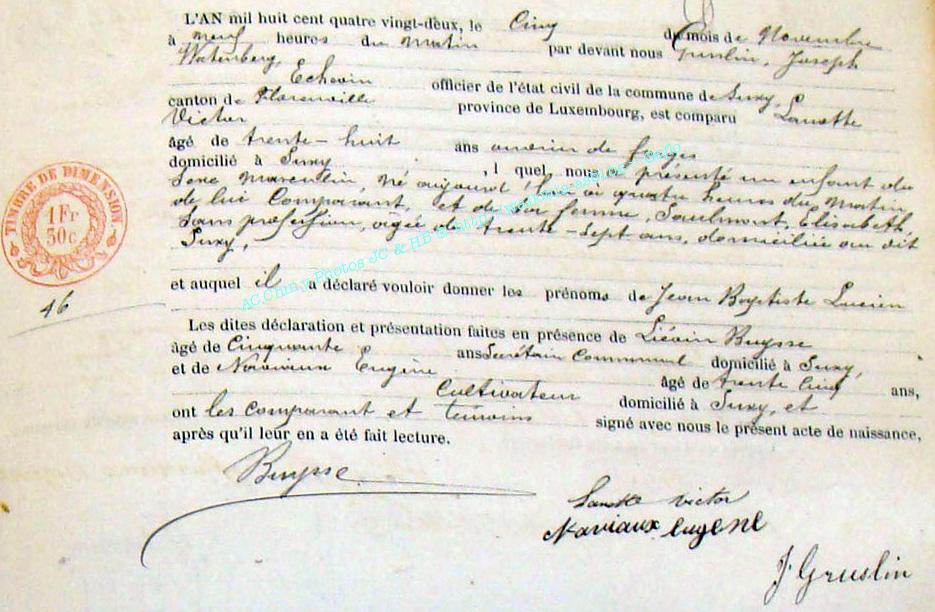 L'AN mil huit cent quatre vingt-deux, le Cinq du mois de Novembre
à neuf heures du matin par devant nous Gruslin, Joseph
Echevin officier de l'état civil de la commune de Suxy,
canton de Florenville province de Luxembourg, est comparu Lamotte
Victor
âgé de trente-huit ans ouvrier de forges
domicilié à Suxy , l quel nous a présenté un enfant du
Sexe masculin, né aujourd'hui à quatre heures du matin
de lui Comparant, et de sa femme, Saulmont, Elisabeth,
Sans profession, agée de trente-sept ans, domiciliée au dit
Suxy,
et auquel il a déclaré vouloir donner les prénoms de Jean Baptiste Lucien
Les dites déclaration et présentation faites en présence de Liévin Buysse
âgé de Cinquante ans Secrétaire Communal domicilié à Suxy,
et de Naviaux Eugène âgé de trente cinq ans,
Cultivateur domicilié à Suxy, et
ont les comparant et témoins signé avec nous le présent acte de naissance,
après qu'il leur en a été fait lecture.
Buysse
Lamotte Victor
Naviaux eugene
J Gruslin
TIMBRE DE DIMENSION
1 Fr
50 c
46
AC Chiny Photos JC & HB &